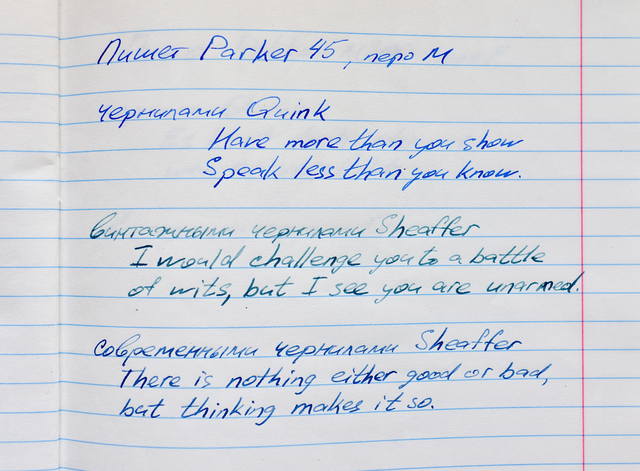 Пишет Parker 45, перо М
чернилами Quink
Have more than you show
Speak less than you know.
винтажными чернилами Sheaffer
I would challenge you to a battle
of wits, but I see you are unarmed.
современными чернилами Sheaffer
There is nothing either good or bad,
but thinking makes it so.